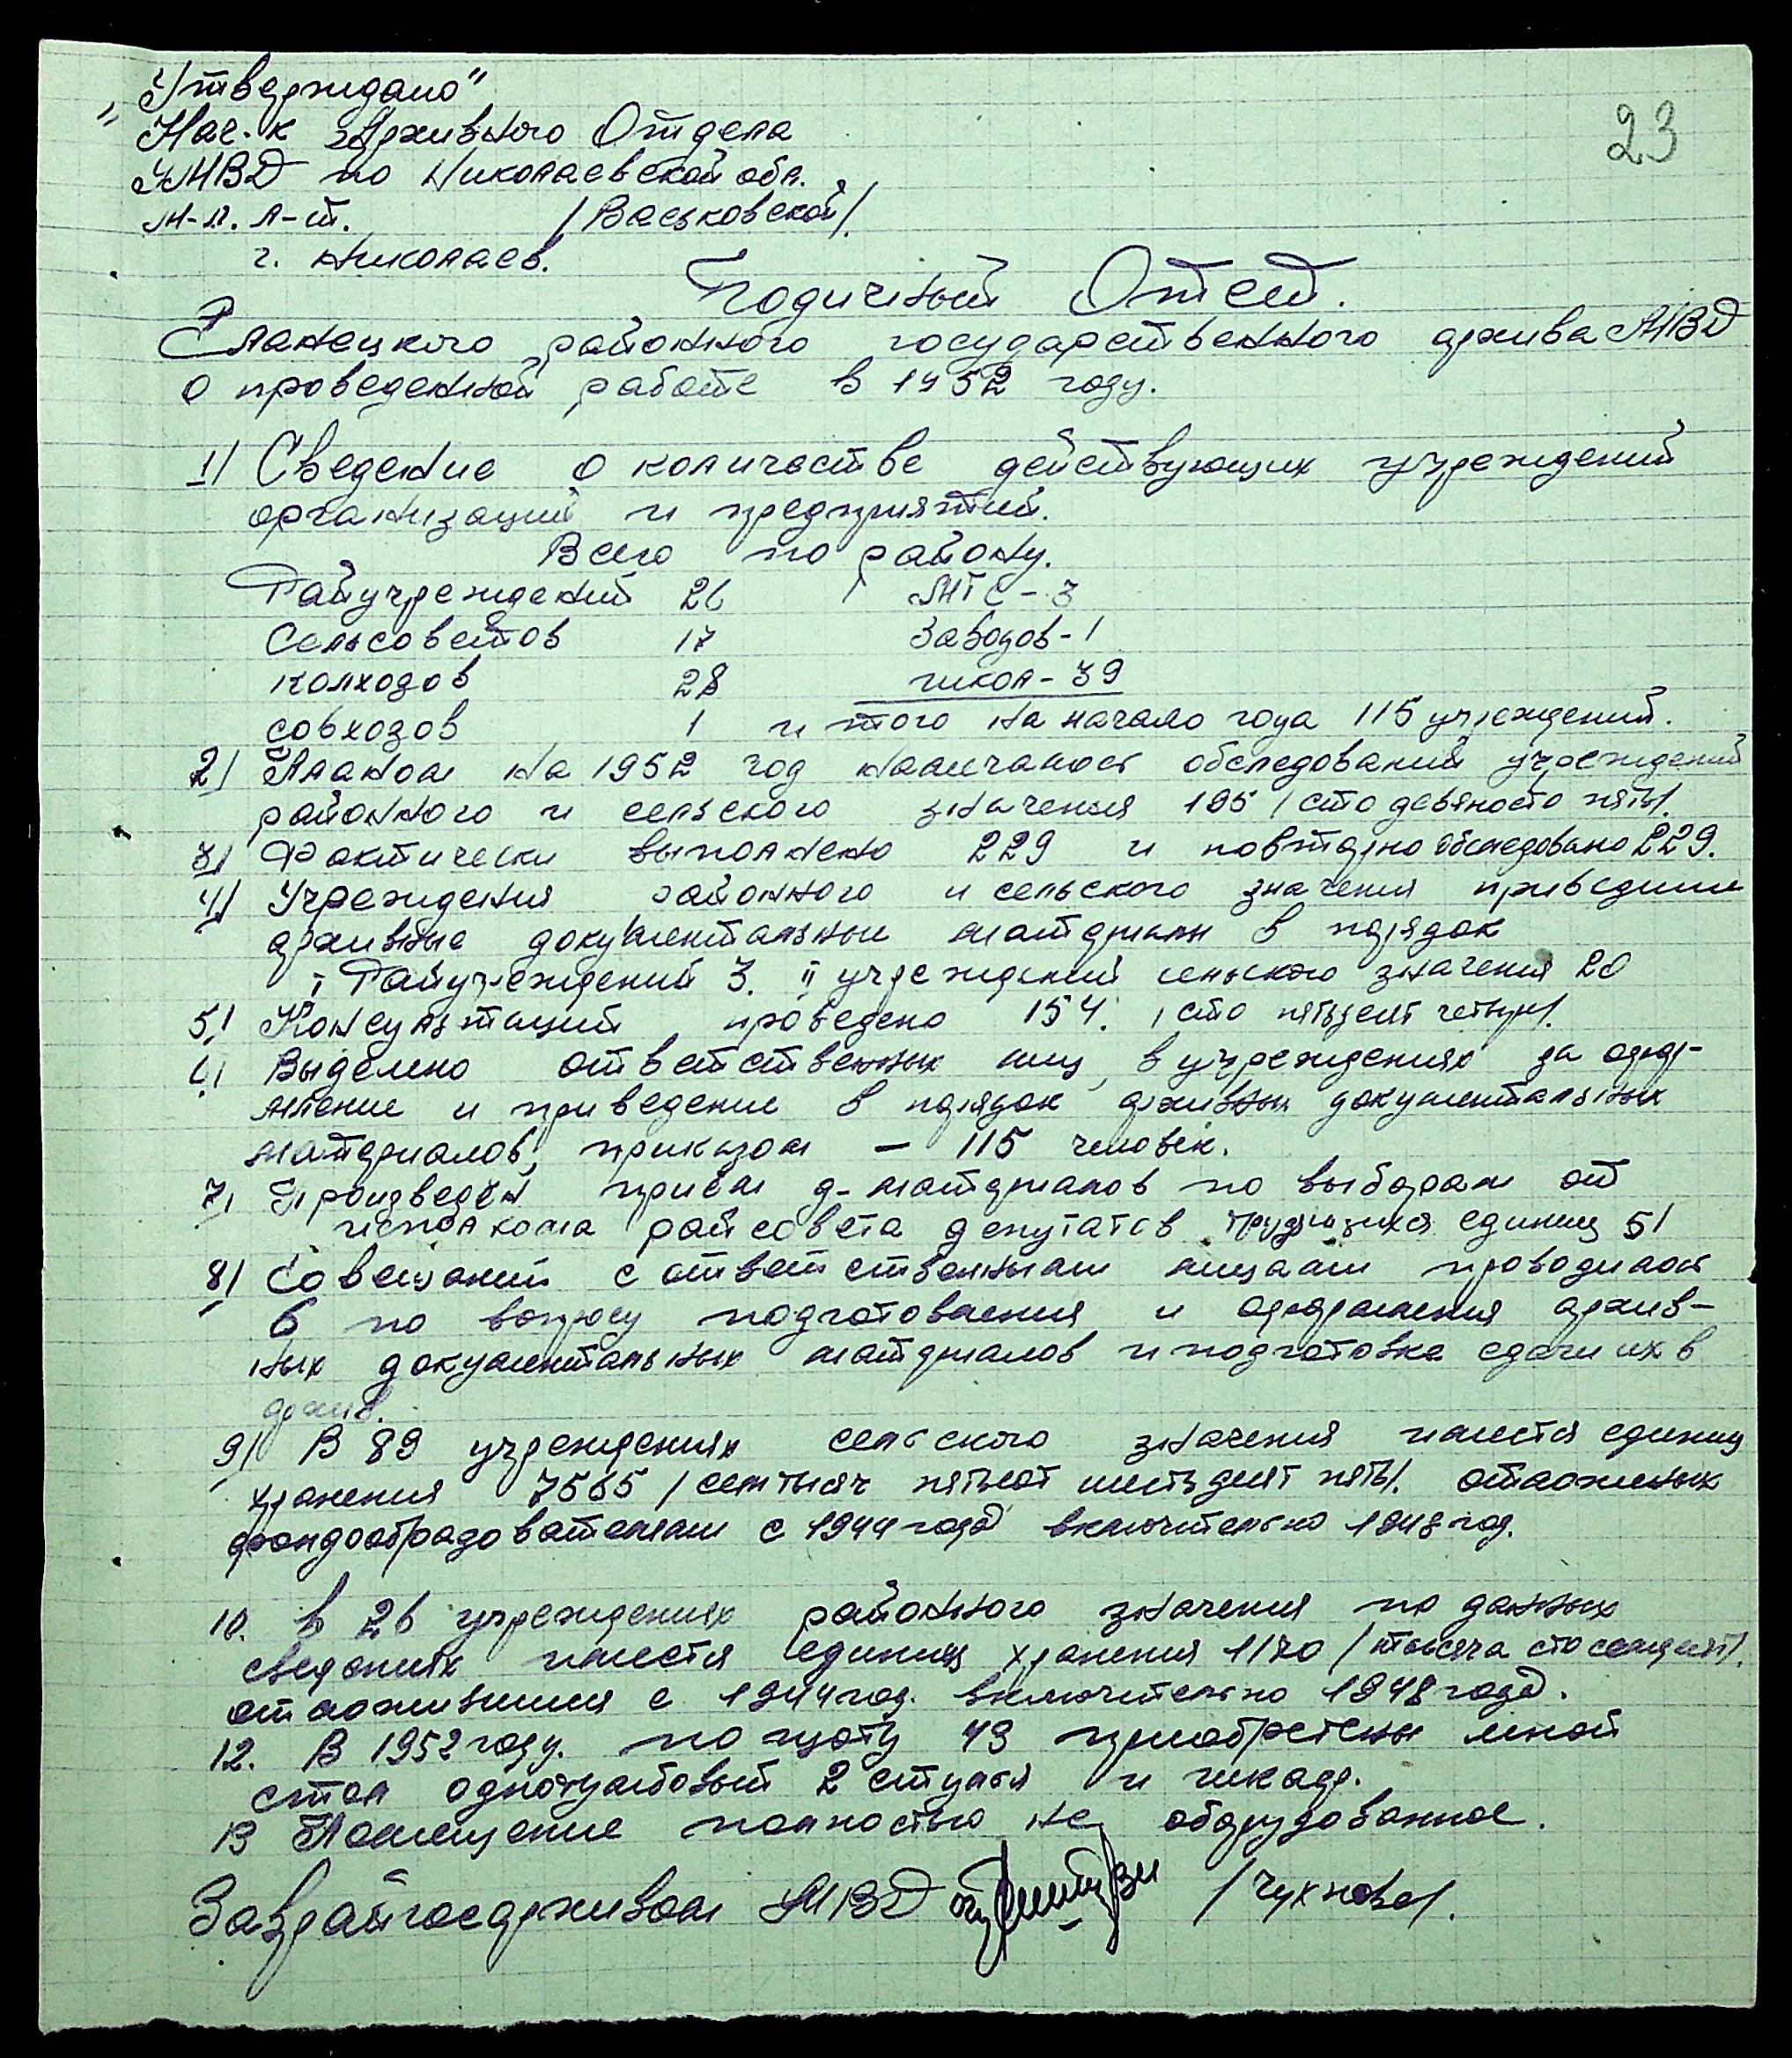 „Утверждаю"
23
Нач-к Архивного Отдела
УМВД по Николаевской обл.
м-л. л-т. /Васьковской/.
г. Николаев.
Годичный Отчет.
Еланецкого районного государственного архива МВД
о проведенной работе в 1952 году.
1/ Сведение о количестве действующих учреждений
организаций и предприятий.
Всего по району.
Райучреждений 26 МТС - 3
Сельсоветов 17 Заводов - 1
колхозов 28 школ - 39
совхозов 1 и того на начало года 115 учреждений.
2/ Планом на 1952 год намечалось обследований учреждений
районного и сельского значения 195 /сто девяносто пять/.
3/ Фактически выполнено 229 и повторно обследовано 229.
4/ Учреждения районного и сельского значения приведшие
архивные документальные материалы в порядок
I Райучреждений 3. II учреждений сельского значения 20
5/ Консультаций проведено 154. /сто пятьдесят четыре/.
6/ Выделено ответственных лиц, в учреждениях за оформ-
мление и приведение в порядок архивных документальных
материалов, приказом — 115 человек.
7/ Произведен прием д-материалов по выборам от
исполкома райсовета депутатов трудящихся единиц 51
8/ Совещаний с ответственными лицами проводилось
6 по вопросу подготовления и оформления архив-
ных документальных материалов и подготовка сдачи их в
архив.
9/ В 89 учреждениях сельского значения имеется единиц
хранения 7565 /семь тысяч пятьсот шестьдесят пять/. отложиных
фондообразователями с 1944 года включительно 1948 год.
10. В 26 учреждениях районного значения по данных
сведениях имеется единиц хранения 1170 / тысяча сто семдесят/.
отложившиися с 1944 год. включительно 1948 года.
12. В 1952 году. по счету 43 приобретены мной
стол однотумбовый 2 стула и шкаф.
13 Помещение полностью не оборудованное.
Заврайгосархивом МВД /Чухнова/.